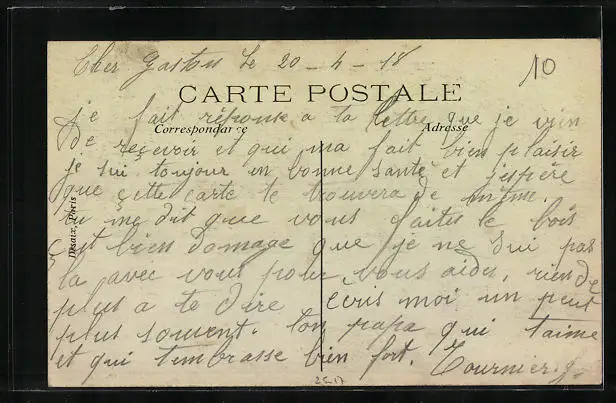 Cher Gaston Le 20-4-18
10
CARTE POSTALE
Correspondance
Adresse
je fait réponse a ta lettre que je vien
de reçevoir et qui ma fait bien plaisir
je sui toujour en bonne santé et j'espère
que çette carte te trouvera de même.
tu me dit que vous faites le bois
s'est bien domage que je ne sui pas
la avec vous pour vous aider, rien de
plus a te dire écris moi un peut
plus souvent. ton papa qui t'aime
et qui t'embrasse bien fort. Tournier. g.
Desaix, Paris